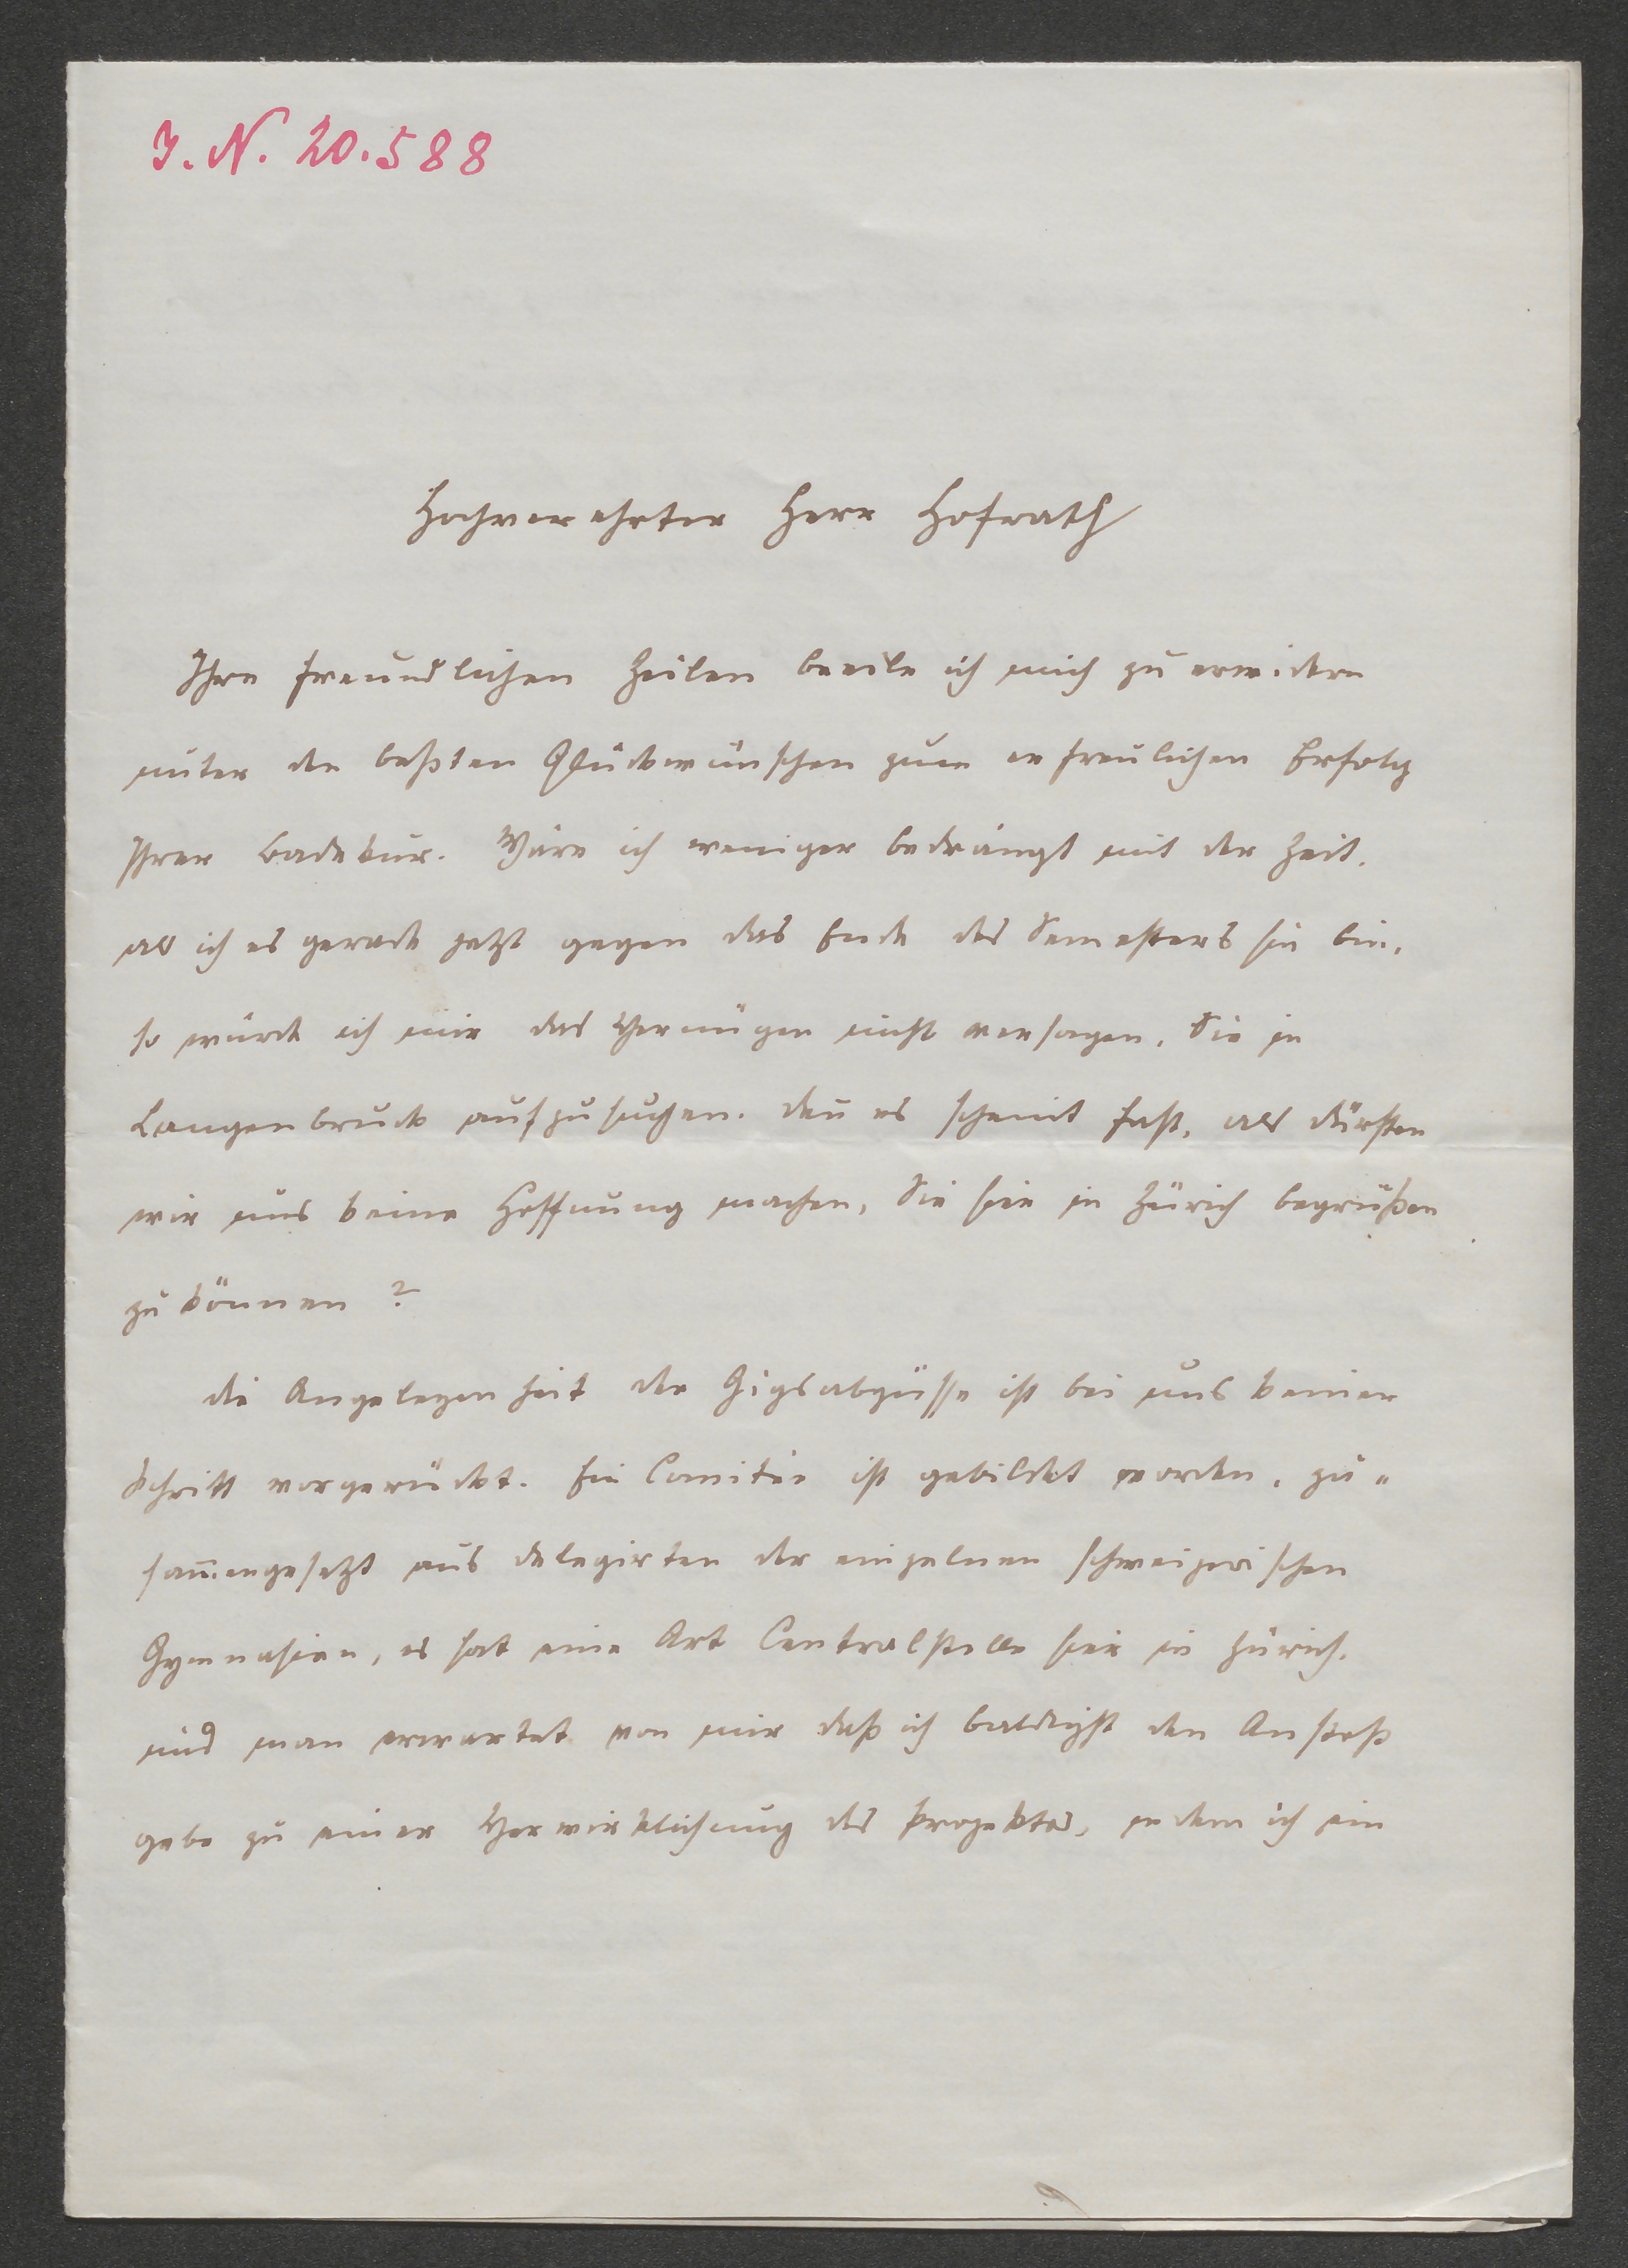 J. N. 20.588
Hochverehrter Herr Hofrath
Ihre freundlichen Zeilen beeile ich mich zu erwidern
unter den beßten Glückwünschen zum erfreulichen Erfolg
Ihrer Badekur. Wäre ich weniger bedrängt mit der Zeit,
als ich es gerade jetzt gegen das Ende des Semesters hin bin,
so würde ich mir das Vernügen nicht versagen, Sie in
Langenbruck aufzusuchen. den̅ es scheint fast, als dürften
wir uns keine Hoffnung machen, Sie hier in Zürich begrüßen
zu können?
die Angelegenheit der Gipsabgüsse ist bei uns keinen
Schritt vorgerückt. Ein Comitée ist gebildet worden, zu„
sam̅engesetzt aus delegirten der einzelnen schweizerischen
Gymnasien, es hat eine Art Centralstelle hier in Zürich.
und man erwartet von mir daß ich baldigst den Anstoß
gebe zu einer Verwirklichung des Projektes, indem ich ein